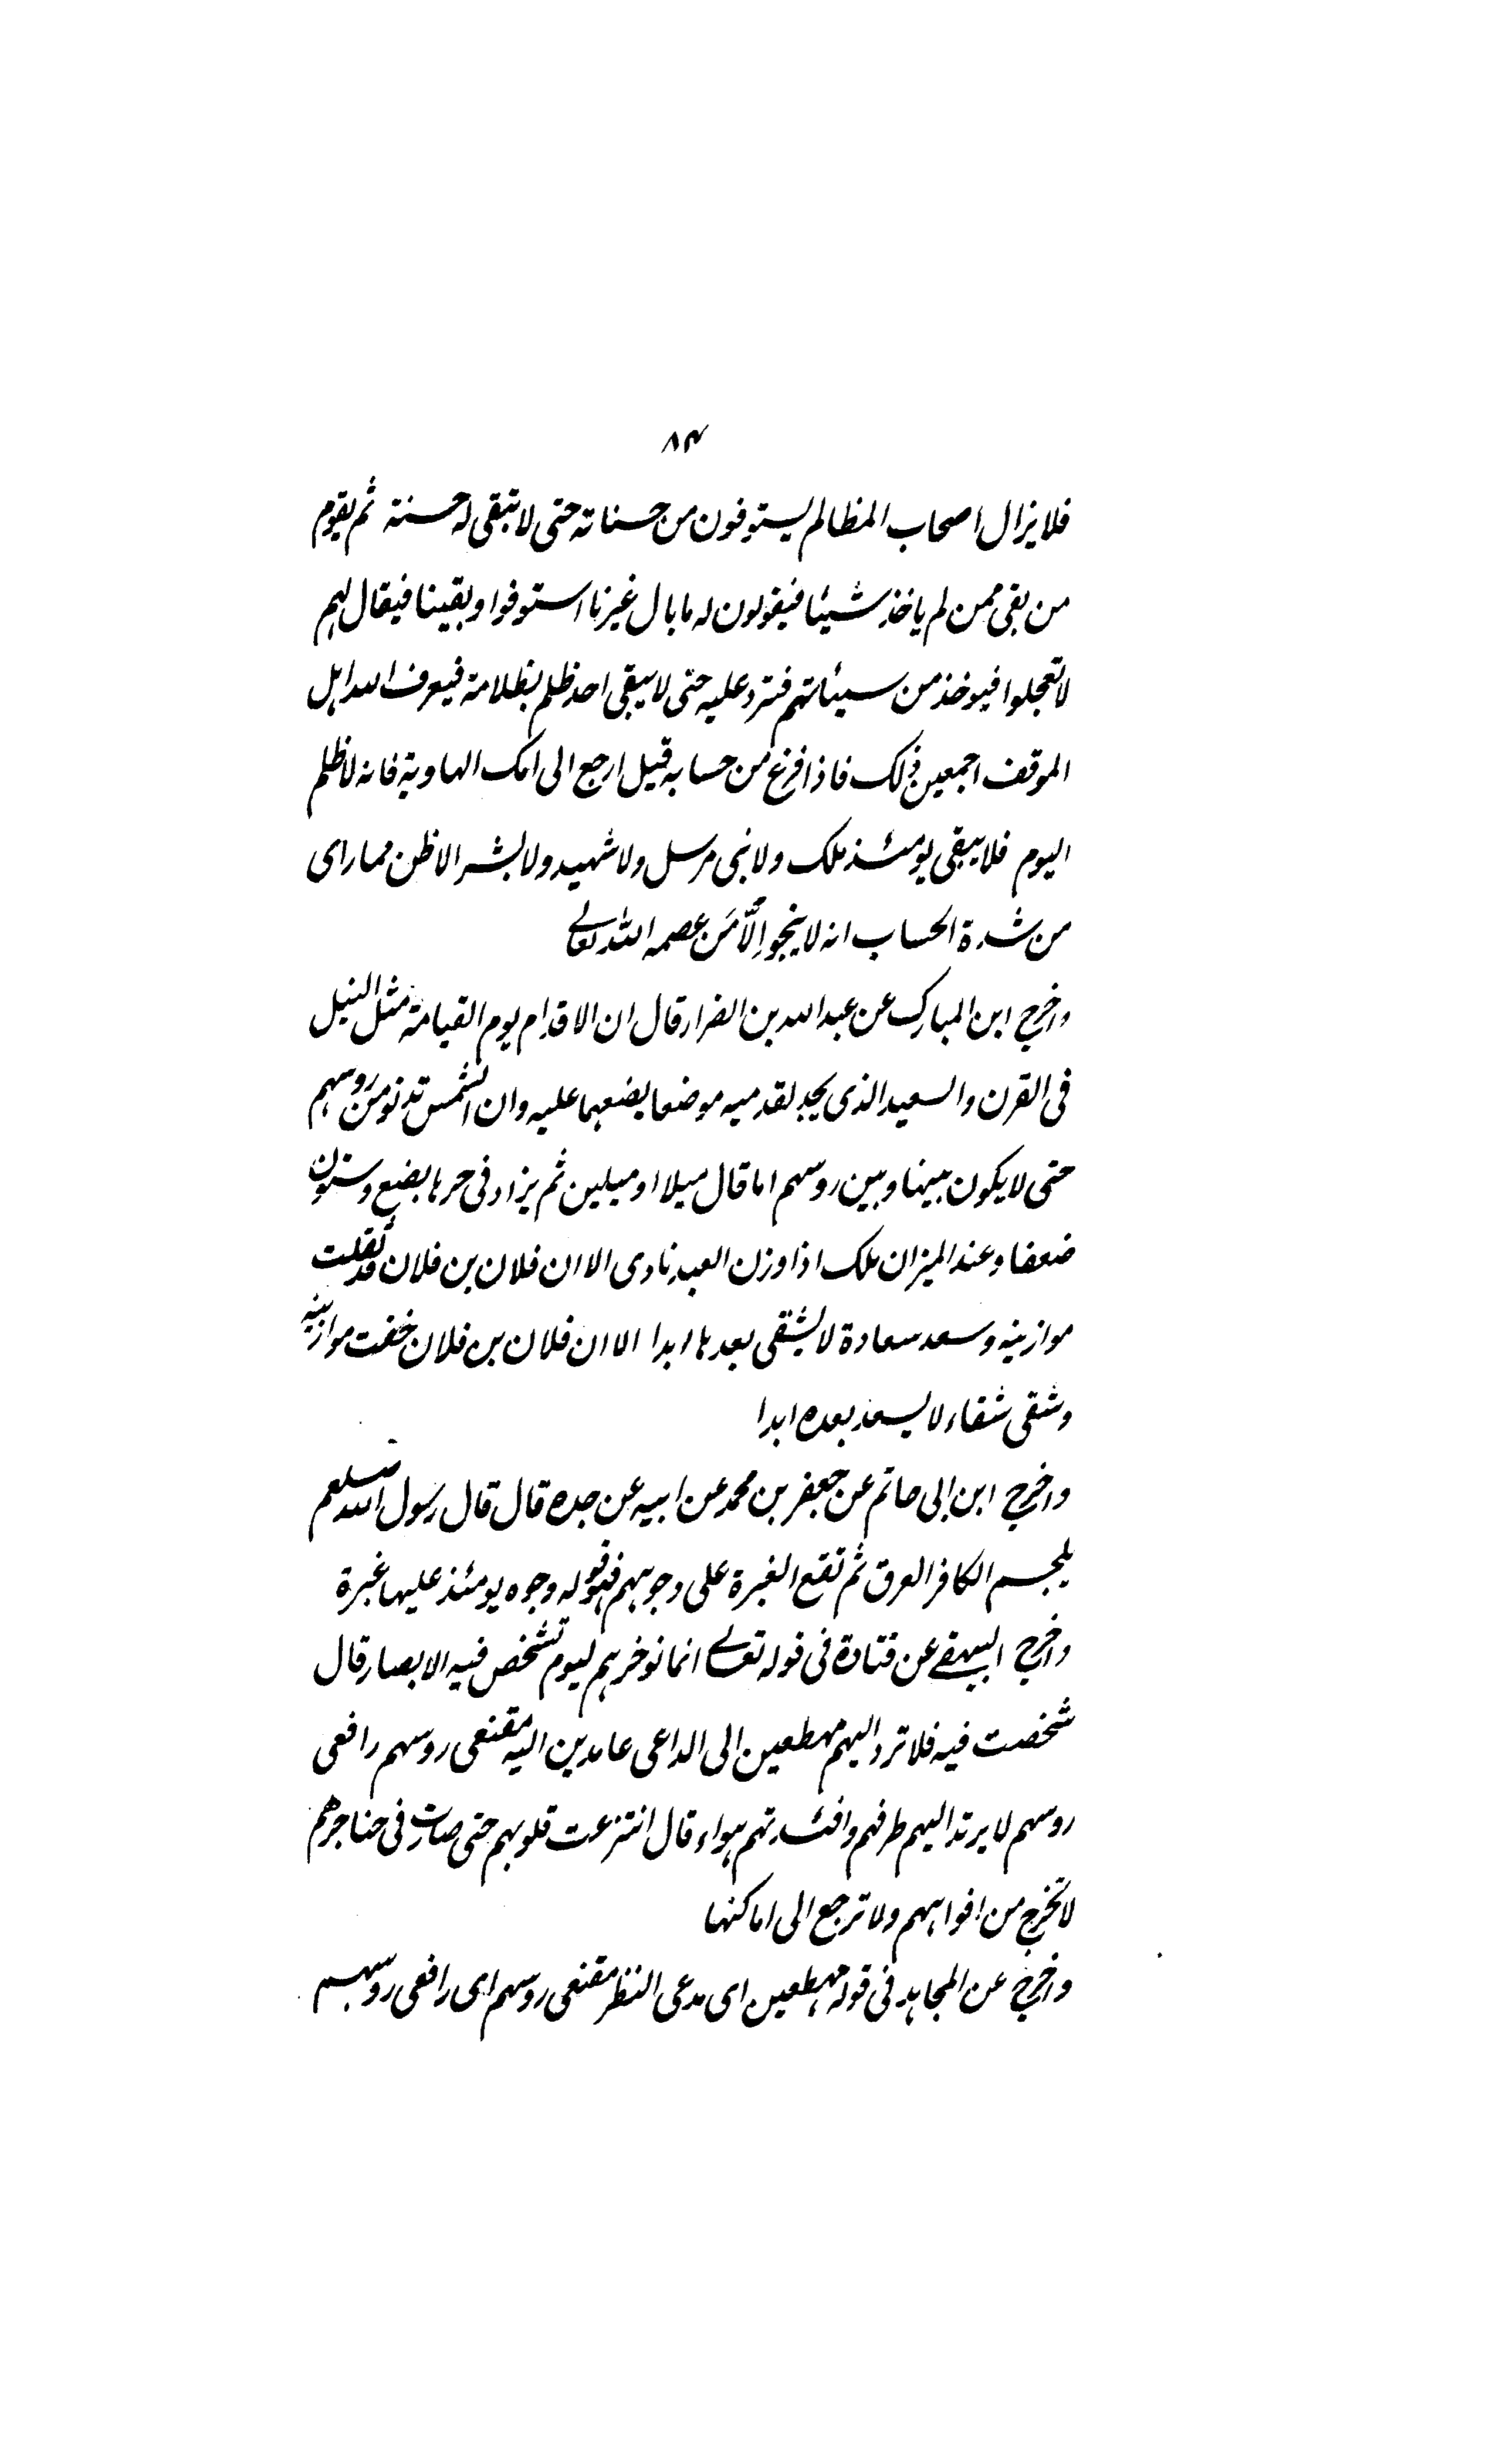 ۸۴
فلا يزال اصحاب المظالم يستوفون من حسناته حتى لا تبقى له حسنة ثم يقوم
من بقى ممن لم ياخذ شيئا فيقولون له ما بال غيرنا استوفوا وبقينا فيقال لهم
لا تعجلوا فيوخذ من سيئاتهم فترد عليه حتى لا يبقى احد ظلم بظلامة فيعرف الله اهل
الموقف اجمعين ذلك فاذا فرغ من حسابه قيل ارجع الى امك الهاوية فانه لا ظلم
اليوم فلا يبقى يومئذ ملك ولا نبى مرسل ولا شهيد ولا بشر الا ظن مما راى
من شدة الحساب انه لا ينجو اِلَّا مَن عصمه الله تعالى
واخرج ابن المبارك عن عبد الله بن الضرار قال ان الاقدام يوم القيامة مثل النبل
فى القرن والسعيد الذى يجد لقدميه موضعا يضعهما عليه وان الشمس تدنو من روسهم
حتى لا يكون بينها وبين روسهم اما قال ميلا او ميلين ثم يزاد فى حرها بضع وستون
ضعفا وعند الميزان ملك اذا وزن العبد نادى الا ان فلان بن فلان قد ثقلت
موازينه وسعد سعادة لا يشقى بعدها ابدا الا ان فلان بن فلان خفت موازينه
وشقى شقاء لا يسعد بعده ابدا
واخرج ابن ابى حاتم عن جعفر بن محمد عن ابيه عن جده قال قال رسول الله صلعم
يلجم الكافر العرق ثم تقع الغبرة على وجوههم فهو قوله وجوه يومئذ عليها غبرة
واخرج البيهقى عن قتادة فى قوله تعالى انما نوخرهم ليوم تشخص فيه الابصار قال
شخصت فيه فلا ترد اليهم مهطعين الى الداعى عامدين اليه مقنعى روسهم رافعى
روسهم لا يرتد اليهم طرفهم وافئدتهم هواء قال انتزعت قلوبهم حتى صارت فى حناجرهم
لا تخرج من افواههم ولا ترجع الى اماكنها
واخرج عن المجاهد فى قوله مهطعين اى مدعى النظر مقنعى روسهم اى رافعى روسهم